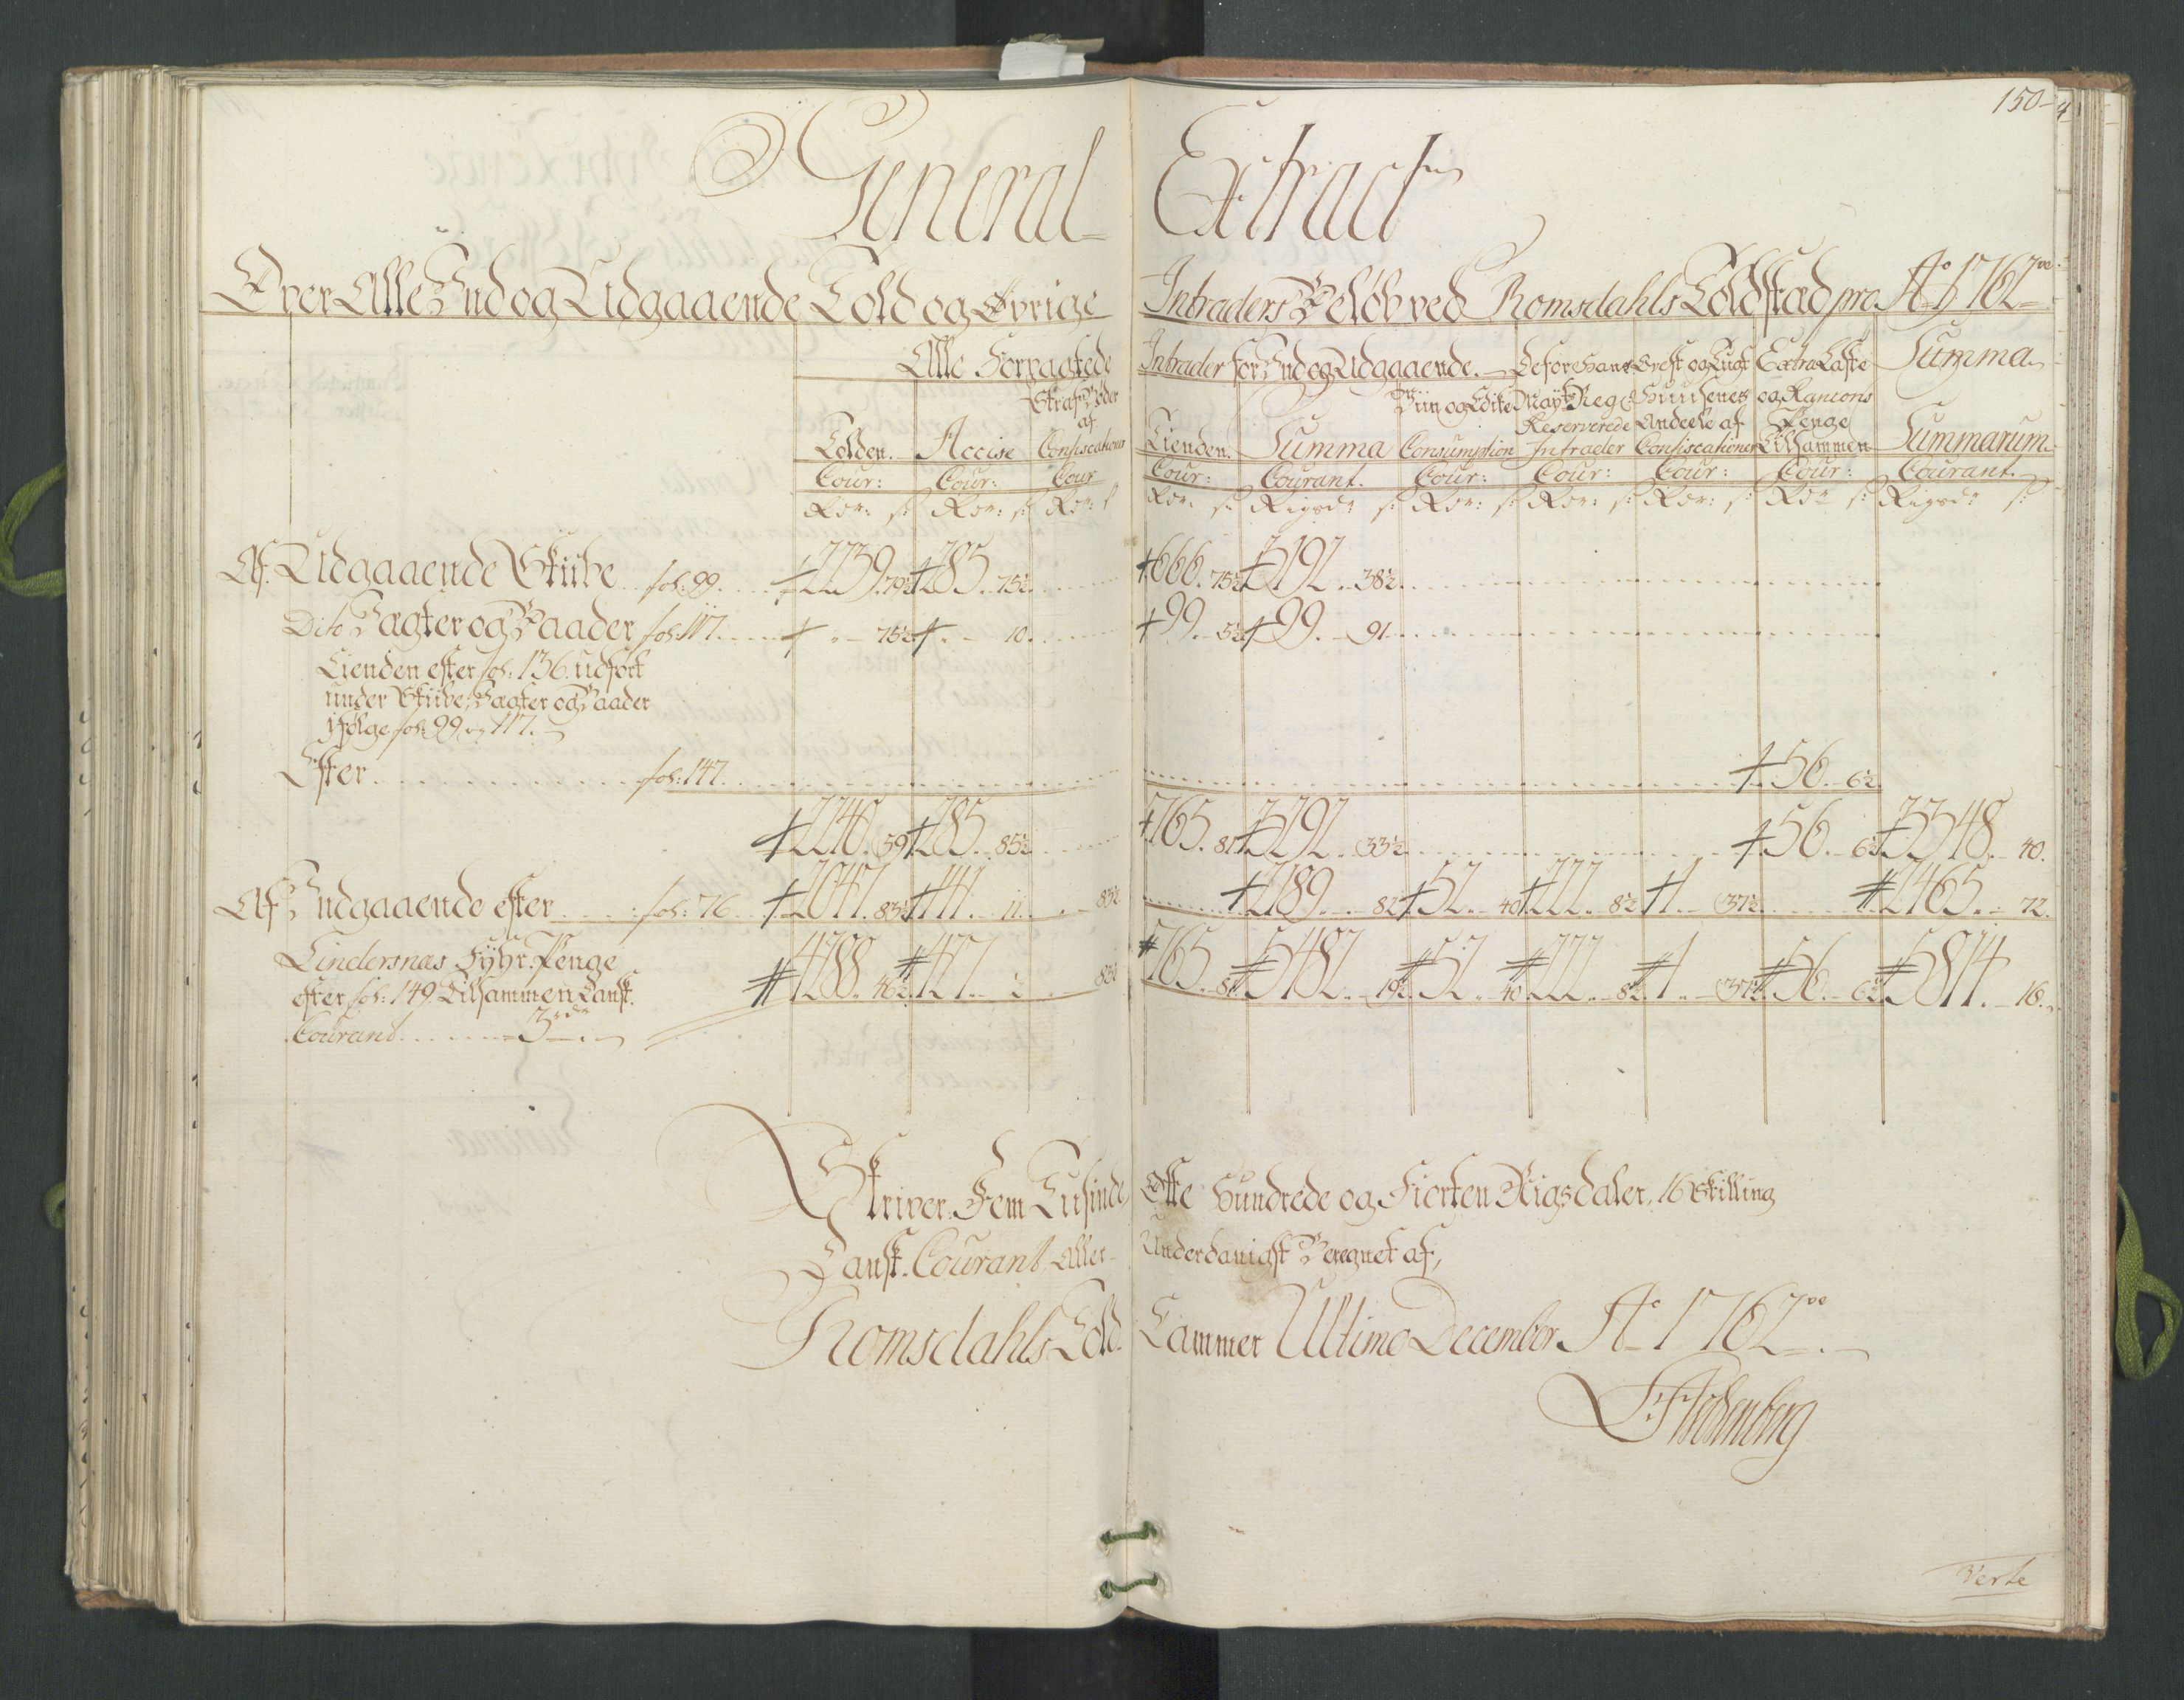 150
General Extract
Over Alle Ind og Udgaaende Told og Øvrige Intraders Beløb ved Romsdahls Toldsted pro Aº 1762
Alle Forpagtede Intrader for Ind og Udgaaende.
De for Hans Mayts Reg: Reserverede Intrader
Extra Laste og Rancons Penge Tilsammen
Summa Summarum
Tolden. Accise Straf Bøder af Confiscationer Tienden. Summa Viin og Edike Consumption Andeele af Confiscationer
Cour: Cour: Cour Cour: Courant. Cour: Cour: Cour: Cour: Courant.
Rdr: s: Rdr: s: Rdr: s Rdr: s: Rigsdr s: Rdr: s: Rdr: s: Rdr: s: Rdr s: Rigsdr s:
Af Udgaaende Skibe fol: 99. 2239. 79½ 285. 75½ 666. 75½ 3192. 38½
Dito Jagter og Baader fol: 117. " 75½ " 10. 99. 5½ 99. 91
Tienden efter fol: 136. udført
under Skibe, Jagter og Baader
ifølge fol: 99 og 117.
Efter fol: 147 56. 6½
2240. 59 285. 85½ 765. 81 3292. 33½ 56. 6½ 3348. 40.
Af Indgaaende efter fol: 76 2047. 83½ 141. 11. 83½ 2189. 82 52. 40 222. 8½ 1. 37½ 2465. 72.
Lindersnæs Fyhr-Penge 4288. 46½ 427. ½ 83½ 765. 81 5482. 19½ 52. 40 222. 8½ 1. 37½ 56. 6½ 5814. 16.
efter fol: 149. Tilsammen Dansk
Courant 3 rdr
Skriver Fem Tusinde Otte Hundrede og Fiorten Rigsdaler, 16 Skilling
Dansk Courant Aller Underdanigst Beregnet af,
Romsdahls Told Cammer Ultimo December Aº 1762
Verte